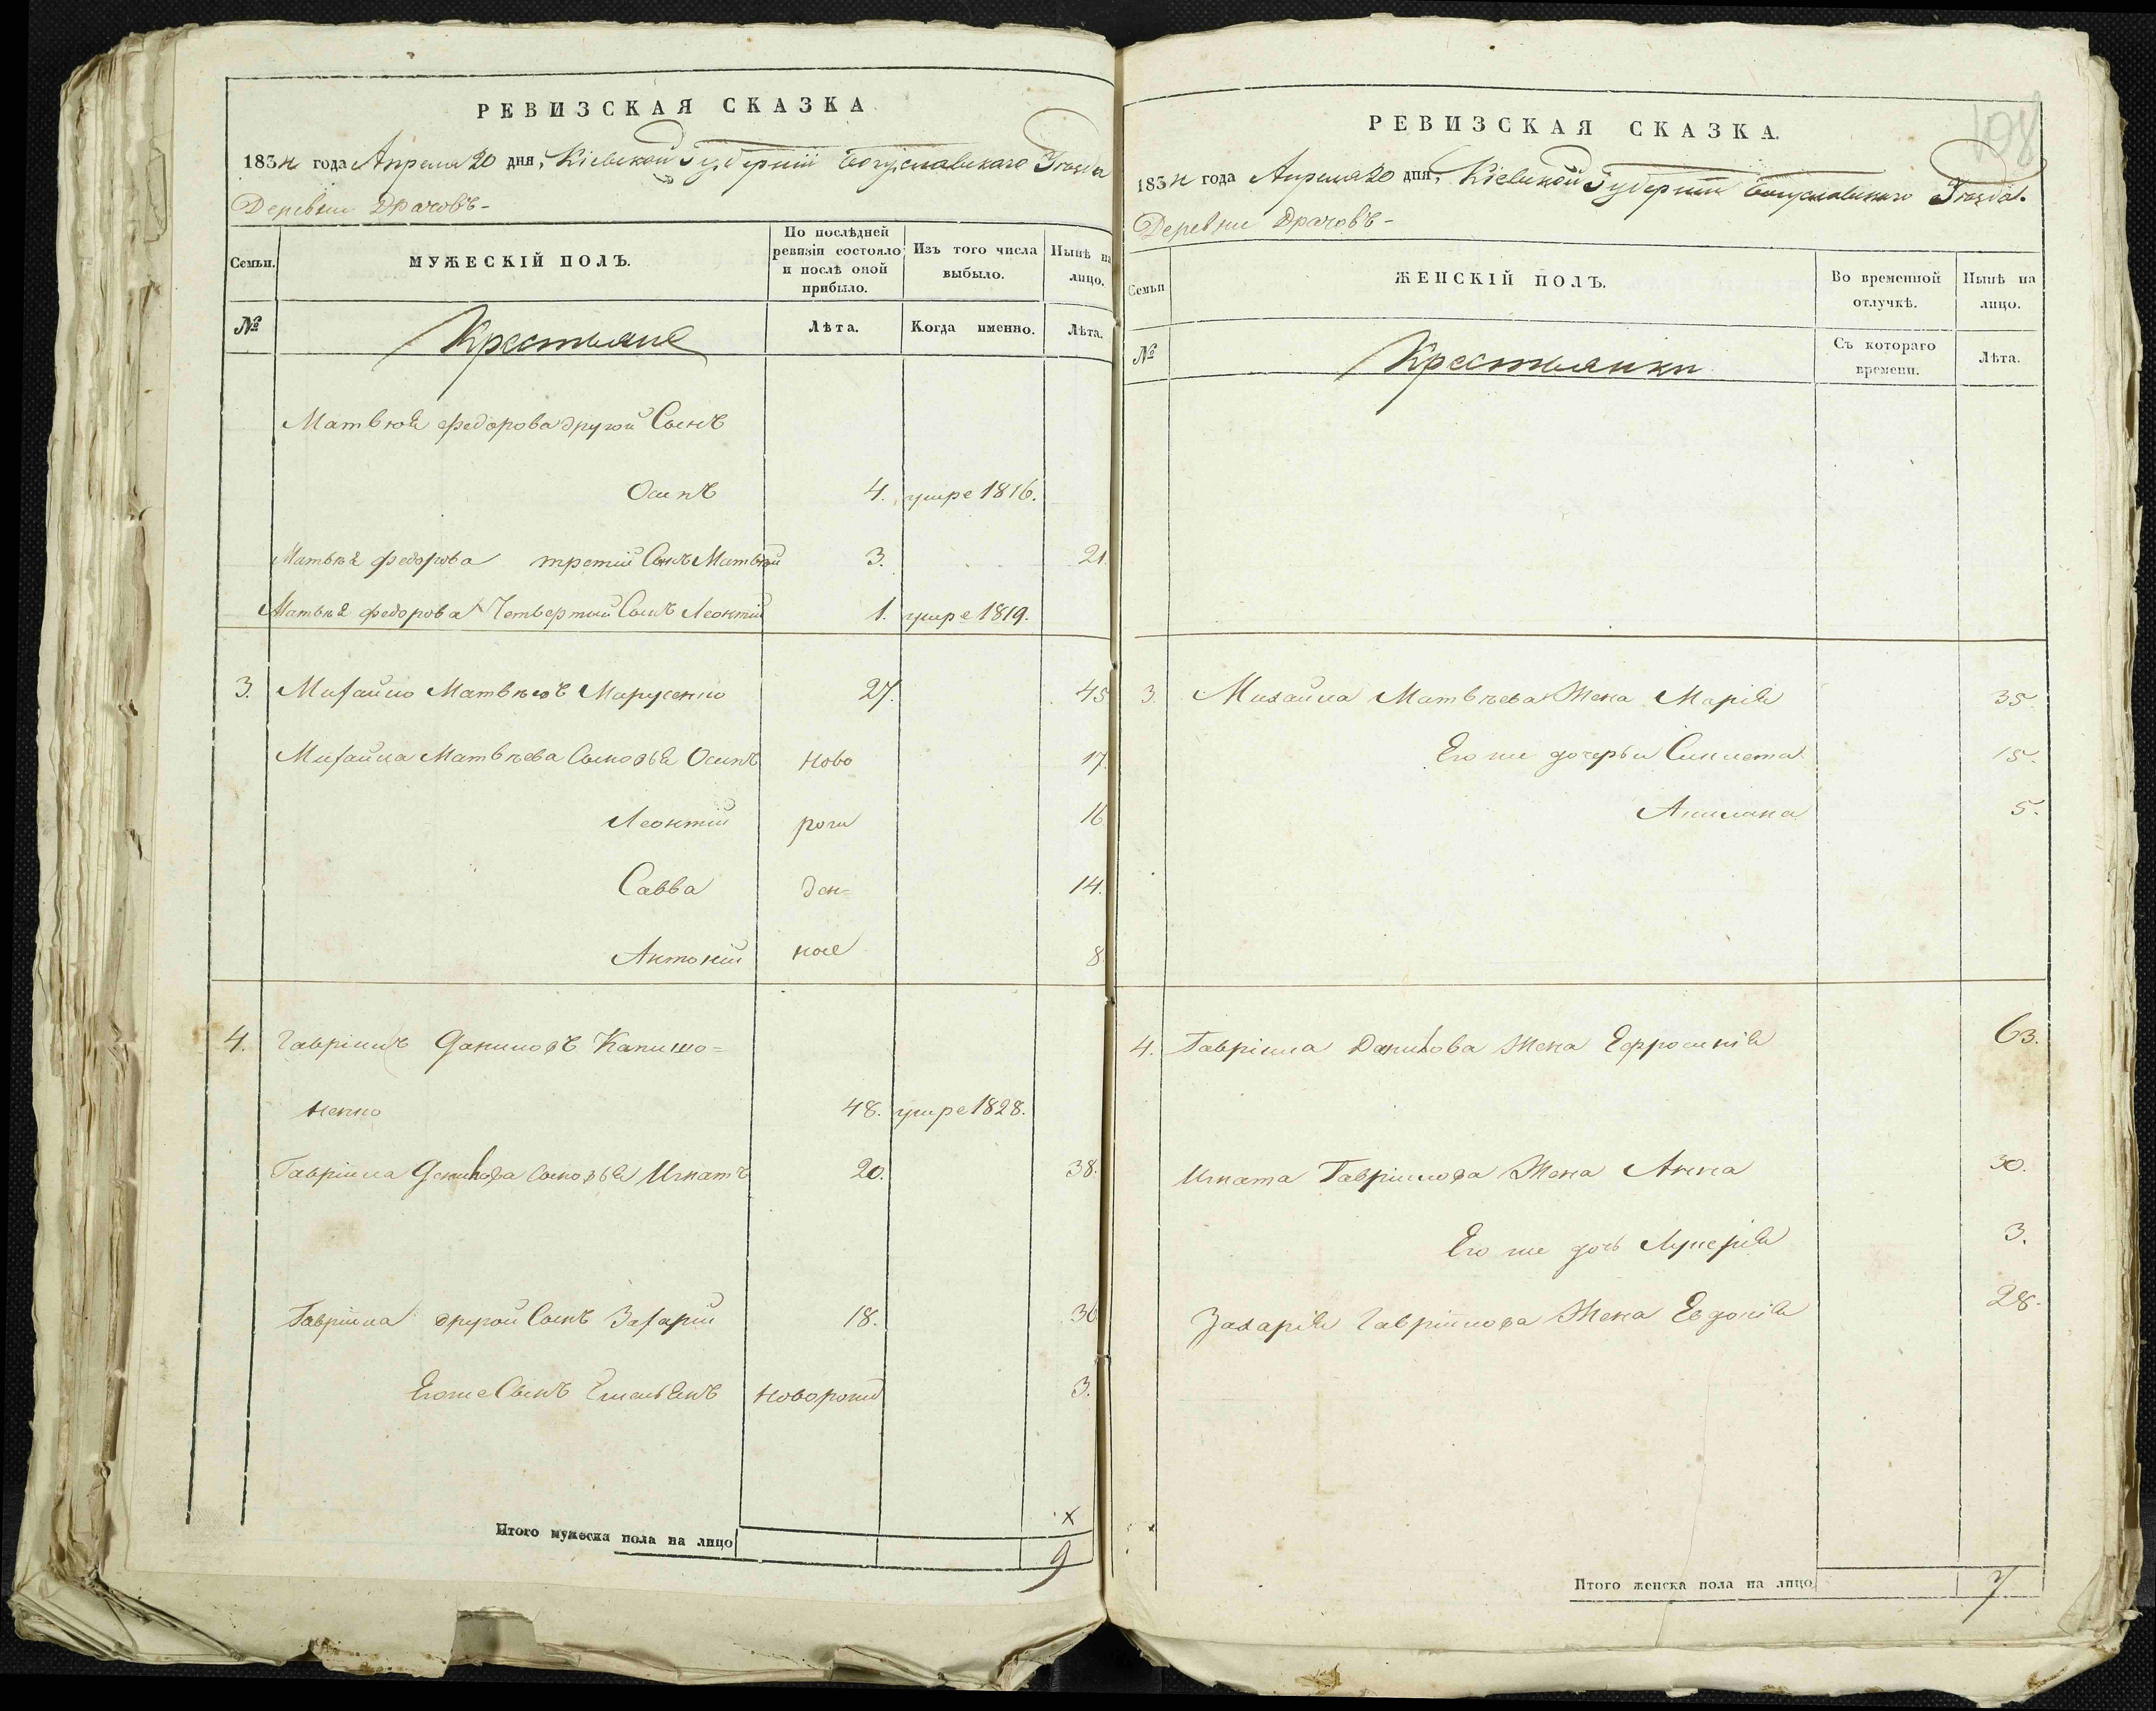 РЕВИЗСКАЯ СКАЗКА
1834 года Апреля 20 дня, Кіевской Губерніи Богуславскаго Уѣзда
Деревни Драчовъ-
Семьи.
МУЖЕСКІЙ ПОЛЪ.
По послѣдней ревизіи состояло и послѣ оной прибыло.
Изъ того числа выбыло.
Нынѣ на лицо.
№
Крестьяне
Лѣта.
Когда именно.
Лѣта.
Матвѣя Федорова другой Сынъ
Осипъ 4. умре 1816.
Матвѣя Федорова третій Сынъ Матвѣй 3. 21.
Матвѣя Федорова Четвертый Сынъ Леонтій 1. умре 1819.
3. Михайло Матвѣевъ Марусенко 27. 45
Михайла Матвѣева Сыновья Осипъ Ново 17.
Леонтій рож 16
Савва ден= 14.
Антоній ные 8
4. Гавріилъ Даниловъ
ненко 48. умре 1828.
Гавріила Данилова Сыновья Игнатъ 20. 38.
Гавріила другой Сынъ Захарій 18. 36
Егоже Сынъ Емельянъ Новорожд 3.
х
Итого мужеска пола на лицо 9
108
РЕВИЗСКАЯ СКАЗКА.
1834 года Апреля 20 дня, Кіевской Губерніи Богуславскаго Уѣзда.
Деревни Драчовъ-
Семьи
ЖЕНСКІЙ ПОЛЪ.
Во временной отлучкѣ.
Нынѣ на лицо.
№
Крестьянки
Съ котораго времени.
Лѣта.
3. Михайла Матвѣева Жена Марія 35.
Его же дочерьи Синклета 15.
5.
4. Гавріила Данилова Жена Ефросинія 63.
Игната Гавріилова Жена Анна 30.
Его же дочь Лукерія 3.
Захарія Гавріилова Жена Евдокія 28.
Итого женска пола на лицо 7